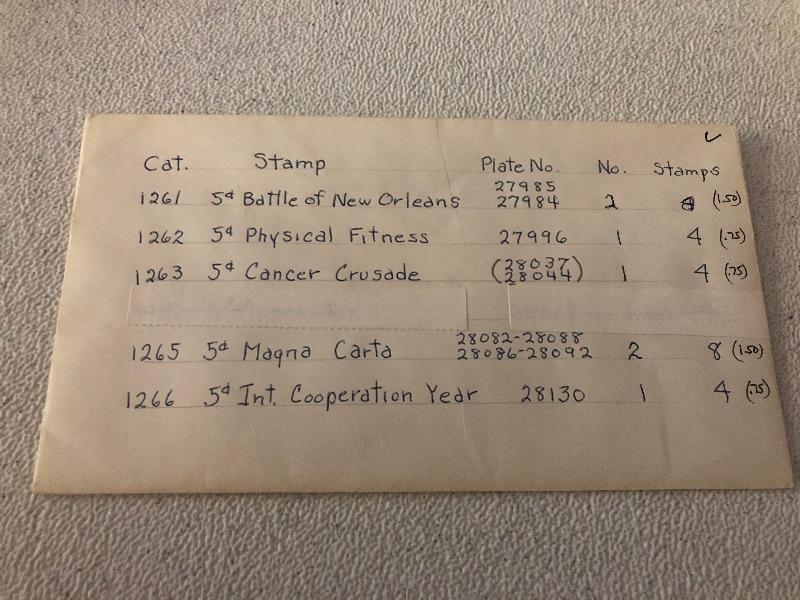 Cat. Stamp Plate No. No. Stamps
27985
1261 5¢ Battle of New Orleans 27984 2 (1.50)
1262 5¢ Physical Fitness 27996 1 4 (.75)
(28037
1263 5¢ Cancer Crusade 28044) 1 4 (.75)
28082-28088
1265 5¢ Magna Carta 28086-28092 2 8 (1.50)
1266 5¢ Int. Cooperation Year 28130 1 4 (.75)